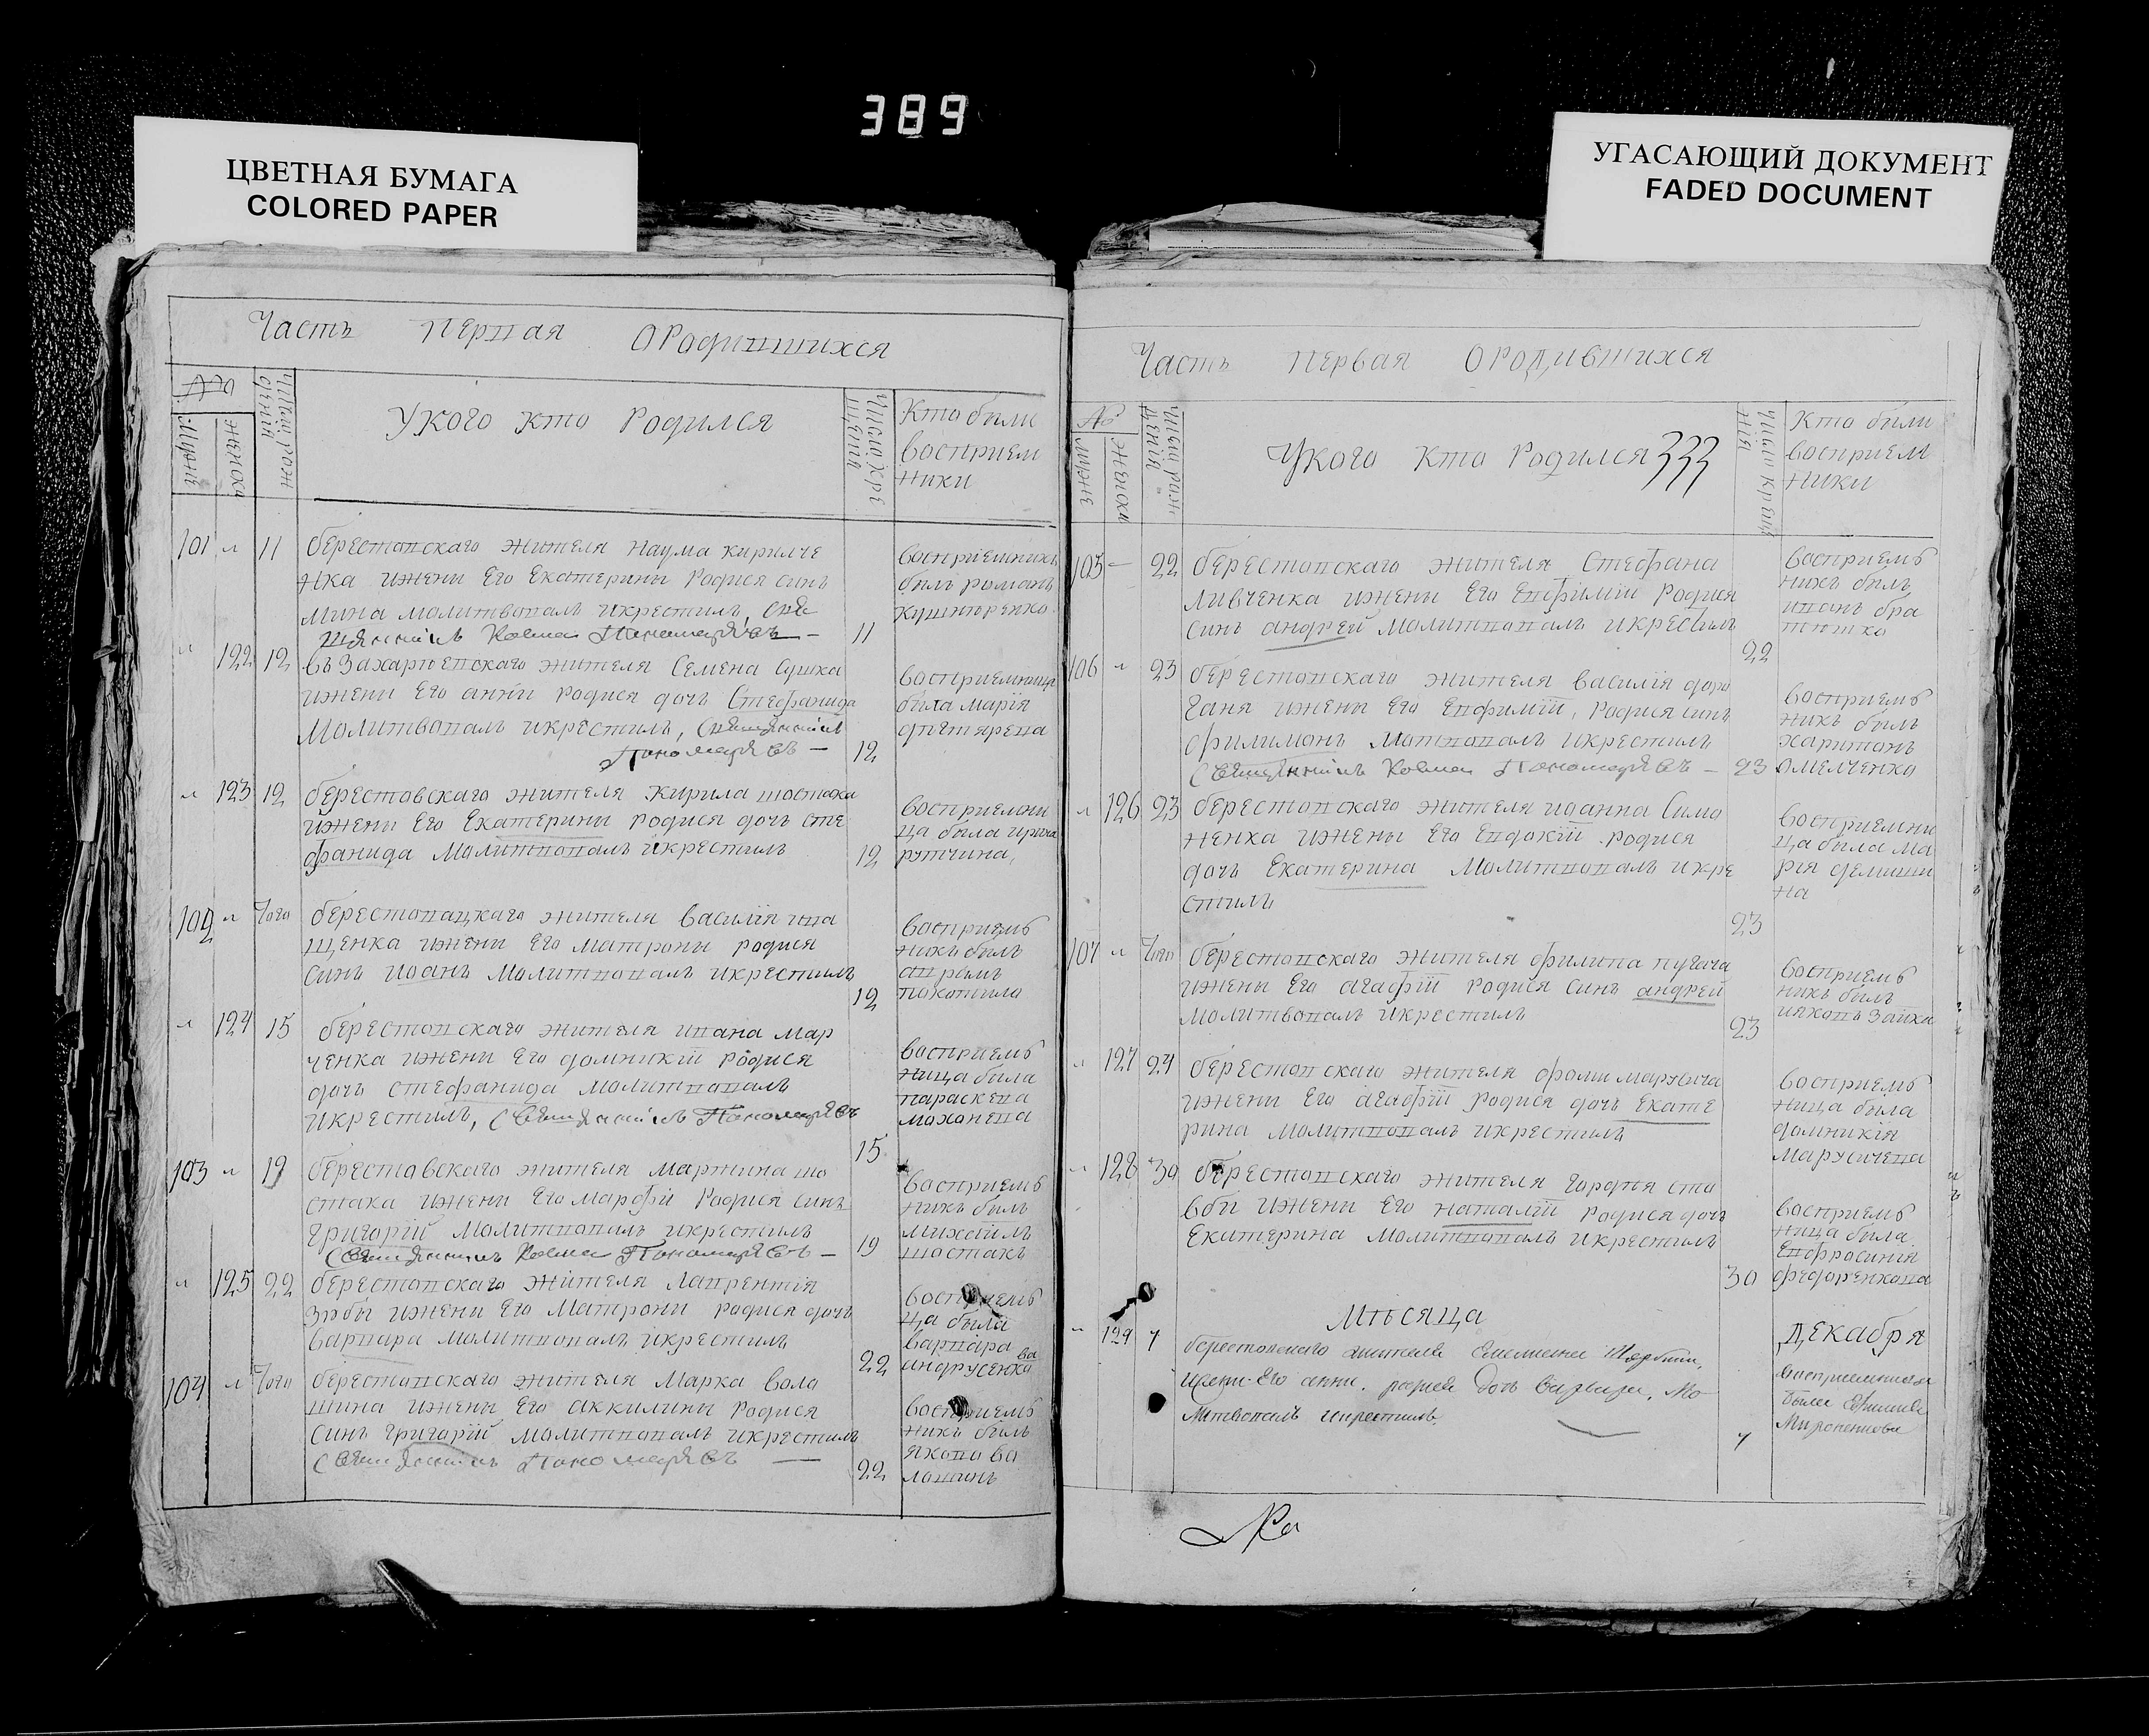 389
ЦВЕТНАЯ БУМАГА
COLORED PAPER
УГАСАЮЩИЙ ДОКУМЕНТ
FADED DOCUMENT
Часть первая Ородившихся
№
Мужеск
женска
Укого кто Родился
Кто были
восприем
ники
101 11 берестовскаго жителя наума кирилче
нка ижени Его Екатерины Родися синъ
мина молитвовалъ икрестилъ, Свя
щенникъ Косма Пономаревъ 11
восприемникъ
билъ романъ
кушнъренко
122 12 въ Захартовскаго жителя Семена сушка
ижени Его анни родися дочь Стефанида
Молитвовалъ икрестилъ, Священникъ
Пономаревъ 12
восприемница
била марія
123 12 берестовскаго жителя Кирила шостака
ижени Его Екатерини родися дочь сте
фанида Молитвовалъ икрестилъ 12
восприемни
ца была
102 Того берестовацкаго жителя василія
щенка ижени Его матрони родися
синъ иоанъ Молитвовалъ икрестилъ 12
восприемъ
никъ билъ
покотила
124 15 берестовскаго жителя ивана мар
ченка ижени Его домникіи родися
дочь стефанида молитвовалъ
икрестилъ, Священникъ Пономаревъ
15
восприемъ
ница била
параскева
маханева
103 19 берестовскаго жителя мартина шо
стака ижени Его марфи Родися синъ
григорій молитвовалъ икрестилъ
Священникъ Косма Пономаревъ 19
восприемъ
никъ билъ
михаилъ
шостакъ
125 22 берестовскаго жителя лаврентія
ижени Его Матрони родися дочь
варвара молитвовалъ икрестилъ 22
восприемъ
ца была
варвара
андрусенкова
104 Того берестовскаго жителя Марка воло
шина ижены Его аккилины Родися
синъ григорій молитвовалъ икрестилъ
Священникъ Пономаревъ 22
восприемъ
никъ билъ
яковъ во
лошинъ
Часть первая Ородившихся
№
мужеск
женска
Укого кто Родился 333
Кто били
восприем
ники
105 22 берестовскаго жителя Стефана
ливченка ижени Его Евфиміи родися
синъ андрей Молитвовалъ икрестилъ
22
восприемъ
никъ билъ
иванъ бра
тюшка
106 23 берестовскаго жителя василія
ганя ижени Его Евфиміи, родися синъ
филимонъ Молитвовалъ икрестилъ
Священникъ Косма Пономаревъ 23
восприемъ
никъ билъ
харитонъ
омелченко
126 23 берестовскаго жителя иоанна Симо
ненка ижены Его Евдокіи родися
дочь Екатерина Молитвовалъ икре
стилъ
23
восприемни
ца была ма
рія демиши
на
107 Того берестовскаго жителя филипа пугача
ижени Его агафіи родися синъ андрей
молитвовалъ икрестилъ
23
восприемъ
никъ билъ
яковъ заика
127 24 берестовскаго жителя фоми марусича
ижени Его агафіи родися дочь Екате
рина молитвовалъ икрестилъ
восприемъ
ница была
домникія
марусичева
128 30 берестовскаго жителя гордѣя сто
вби ижени Его наталіи родися дочь
Екатерина Молитвовалъ икрестилъ
30
восприемъ
ница била
Евфросинія
федоренкова
Мѣсяца Декабря
129 7 берестовскаго жителя
ижени Его анни, родися дочь варвара, Мо
литвовалъ икрестилъ
7
восприемница
была
Мироненкова